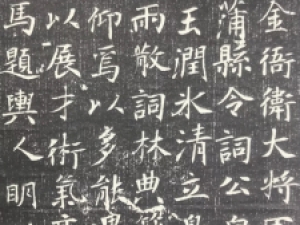 金衙衛大将
蒲縣令詞公
玉潤氷清立
雨散詞林典
仰焉以多能
以展才術氣
馬題輿人明